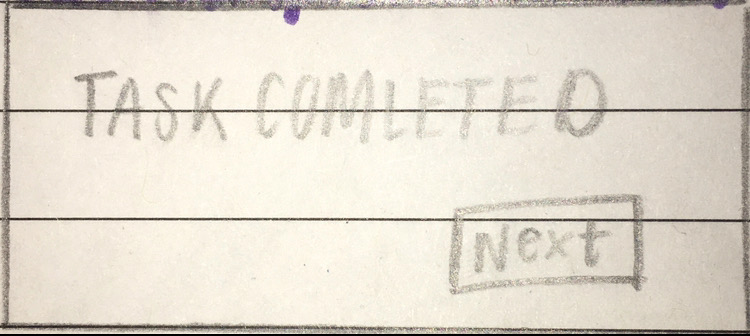 TASK COMLETED
Next